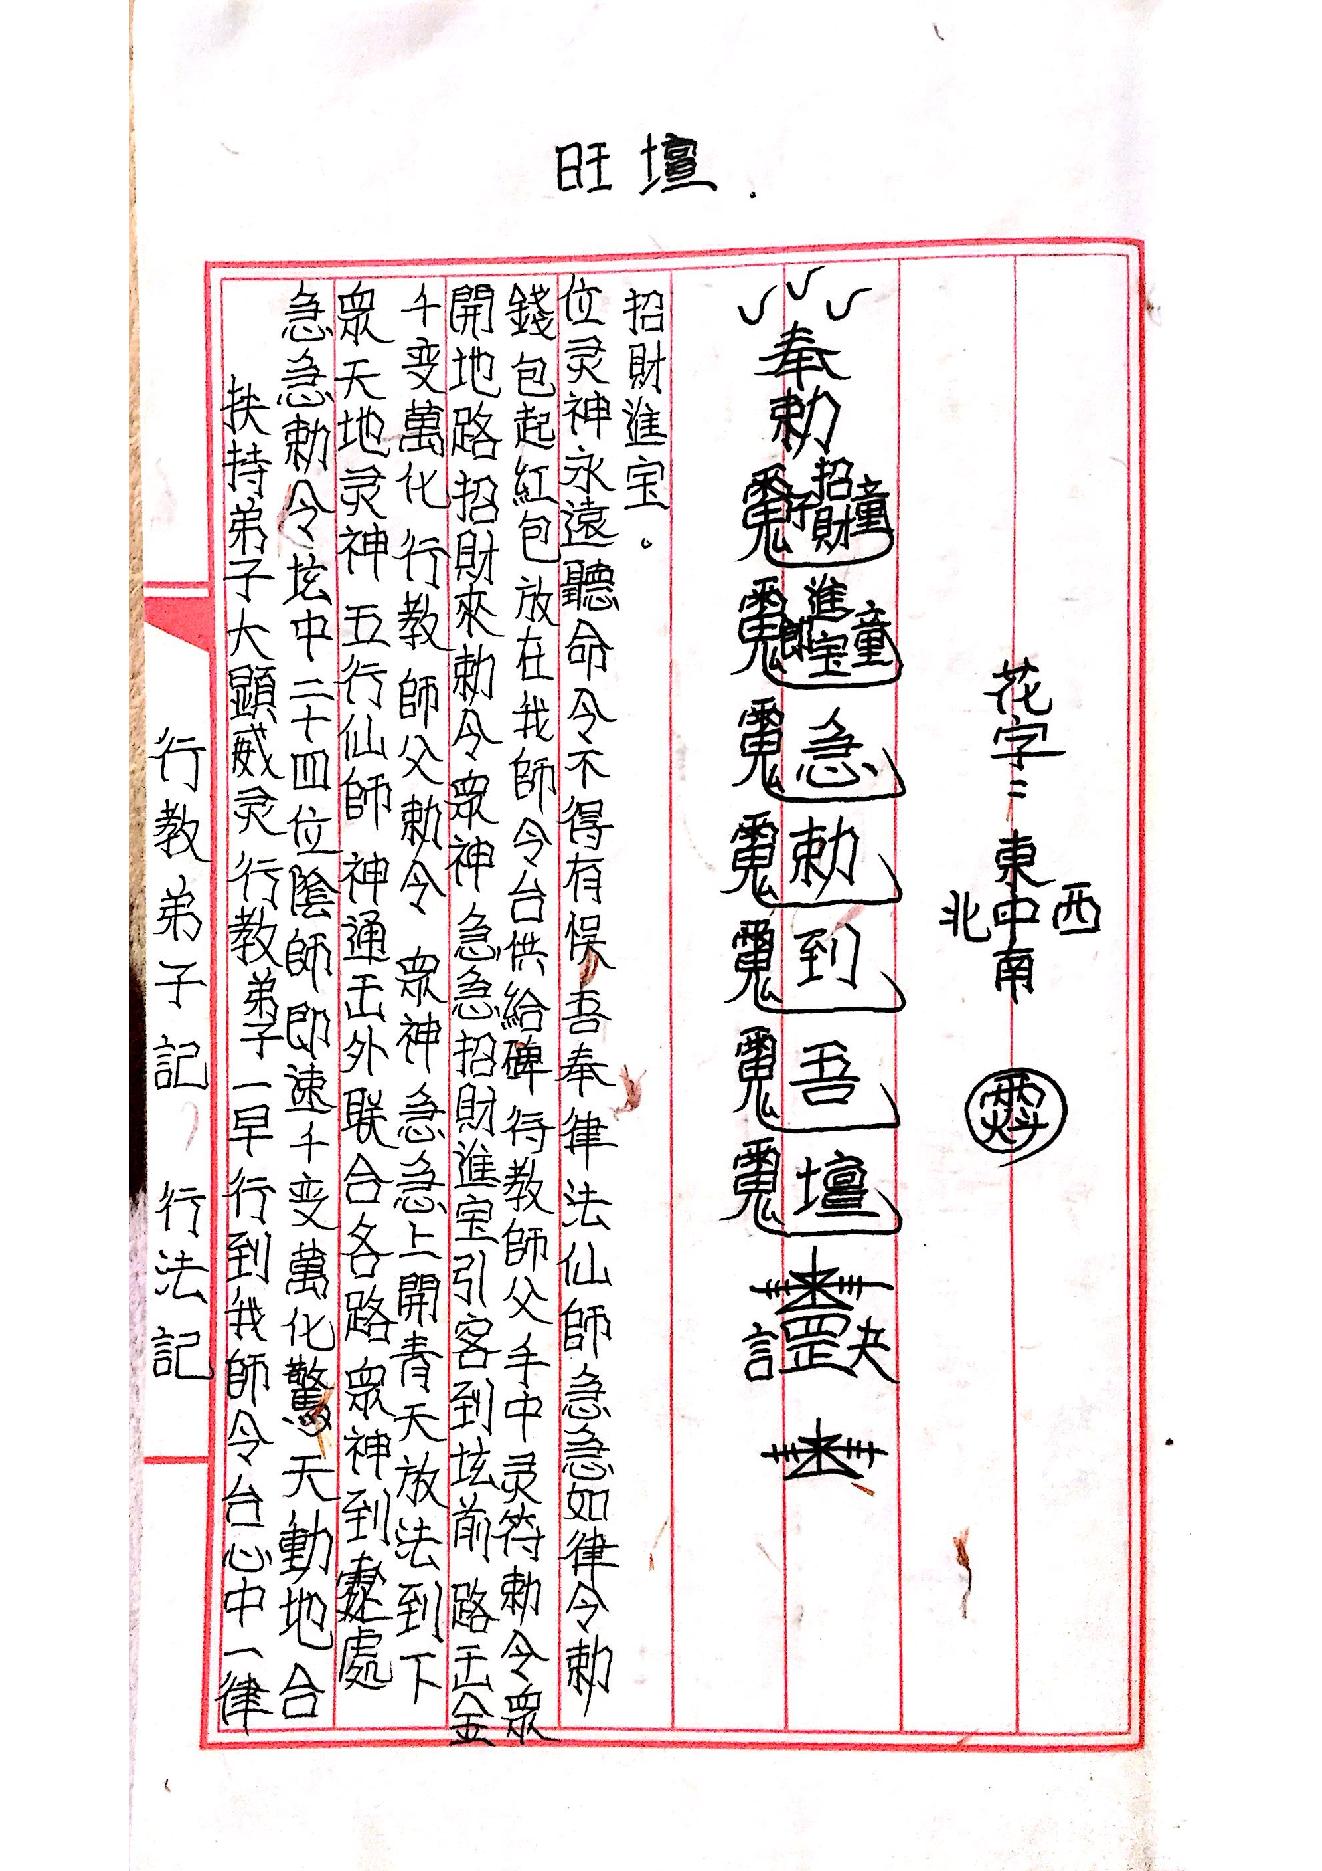 旺壇.
行教弟子記 行法記
扶持弟子大顯威灵 行教弟子一早行到我師令台心中一律
急急勅令坛中二十四位陰師即速千变萬化驚天動地合
眾天地灵神 五行仙師 神通出外联合各路眾神到處
千变萬化 行教師父勅令 眾神急急上開青天放法到下
開地路招財來勅令眾神 急急招財進宝引客到坛前 路出金
錢包起紅包放在我師令台供給碑 行教師父手中灵符勅令眾
位灵神永遠聽命令不得有悮 吾奉律法仙師急急如律令勅
招財進宝。
奉勅
招財童子
進宝童郎
急
勅
到
吾
壇
罡
訣
花字:
東
北中西
南